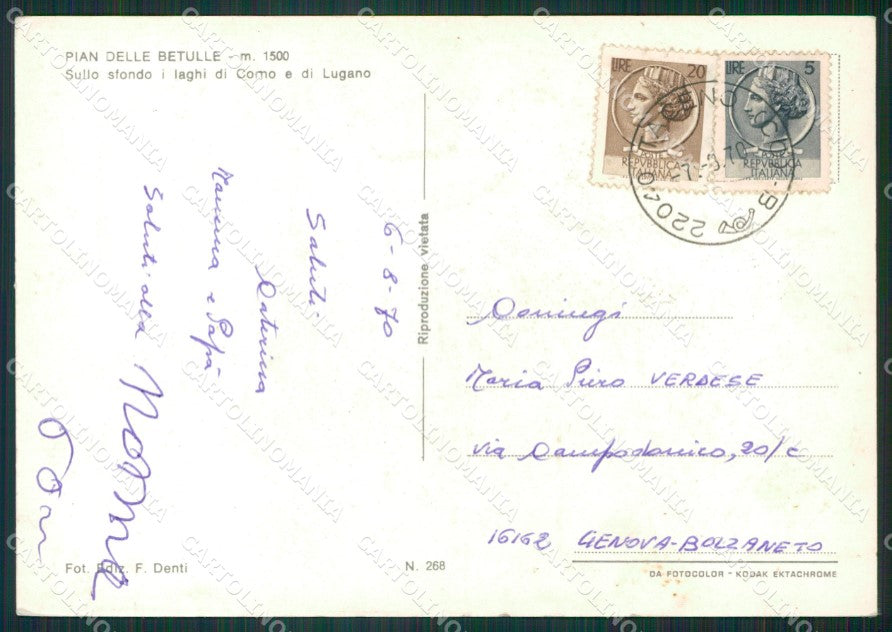 PIAN DELLE BETULLE - m. 1500
Sullo sfondo i laghi di Como e di Lugano
LIRE 20
POSTE
REPVBBLICA
ITALIANA
LIRE 5
POSTE
REPVBBLICA
ITALIANA
22040
-7.-8.70
6-8-70
Saluti.
Caterina
Mamma e Papà
Saluti alla
Nonna
Riproduzione vietata
Coniugi
Maria Piero VERDESE
via Campodonico, 20/c
16162 GENOVA-BOLZANETO
Fot. Ediz. F. Denti
N. 268
DA FOTOCOLOR - KODAK EKTACHROME
CARTOLINOMANIA